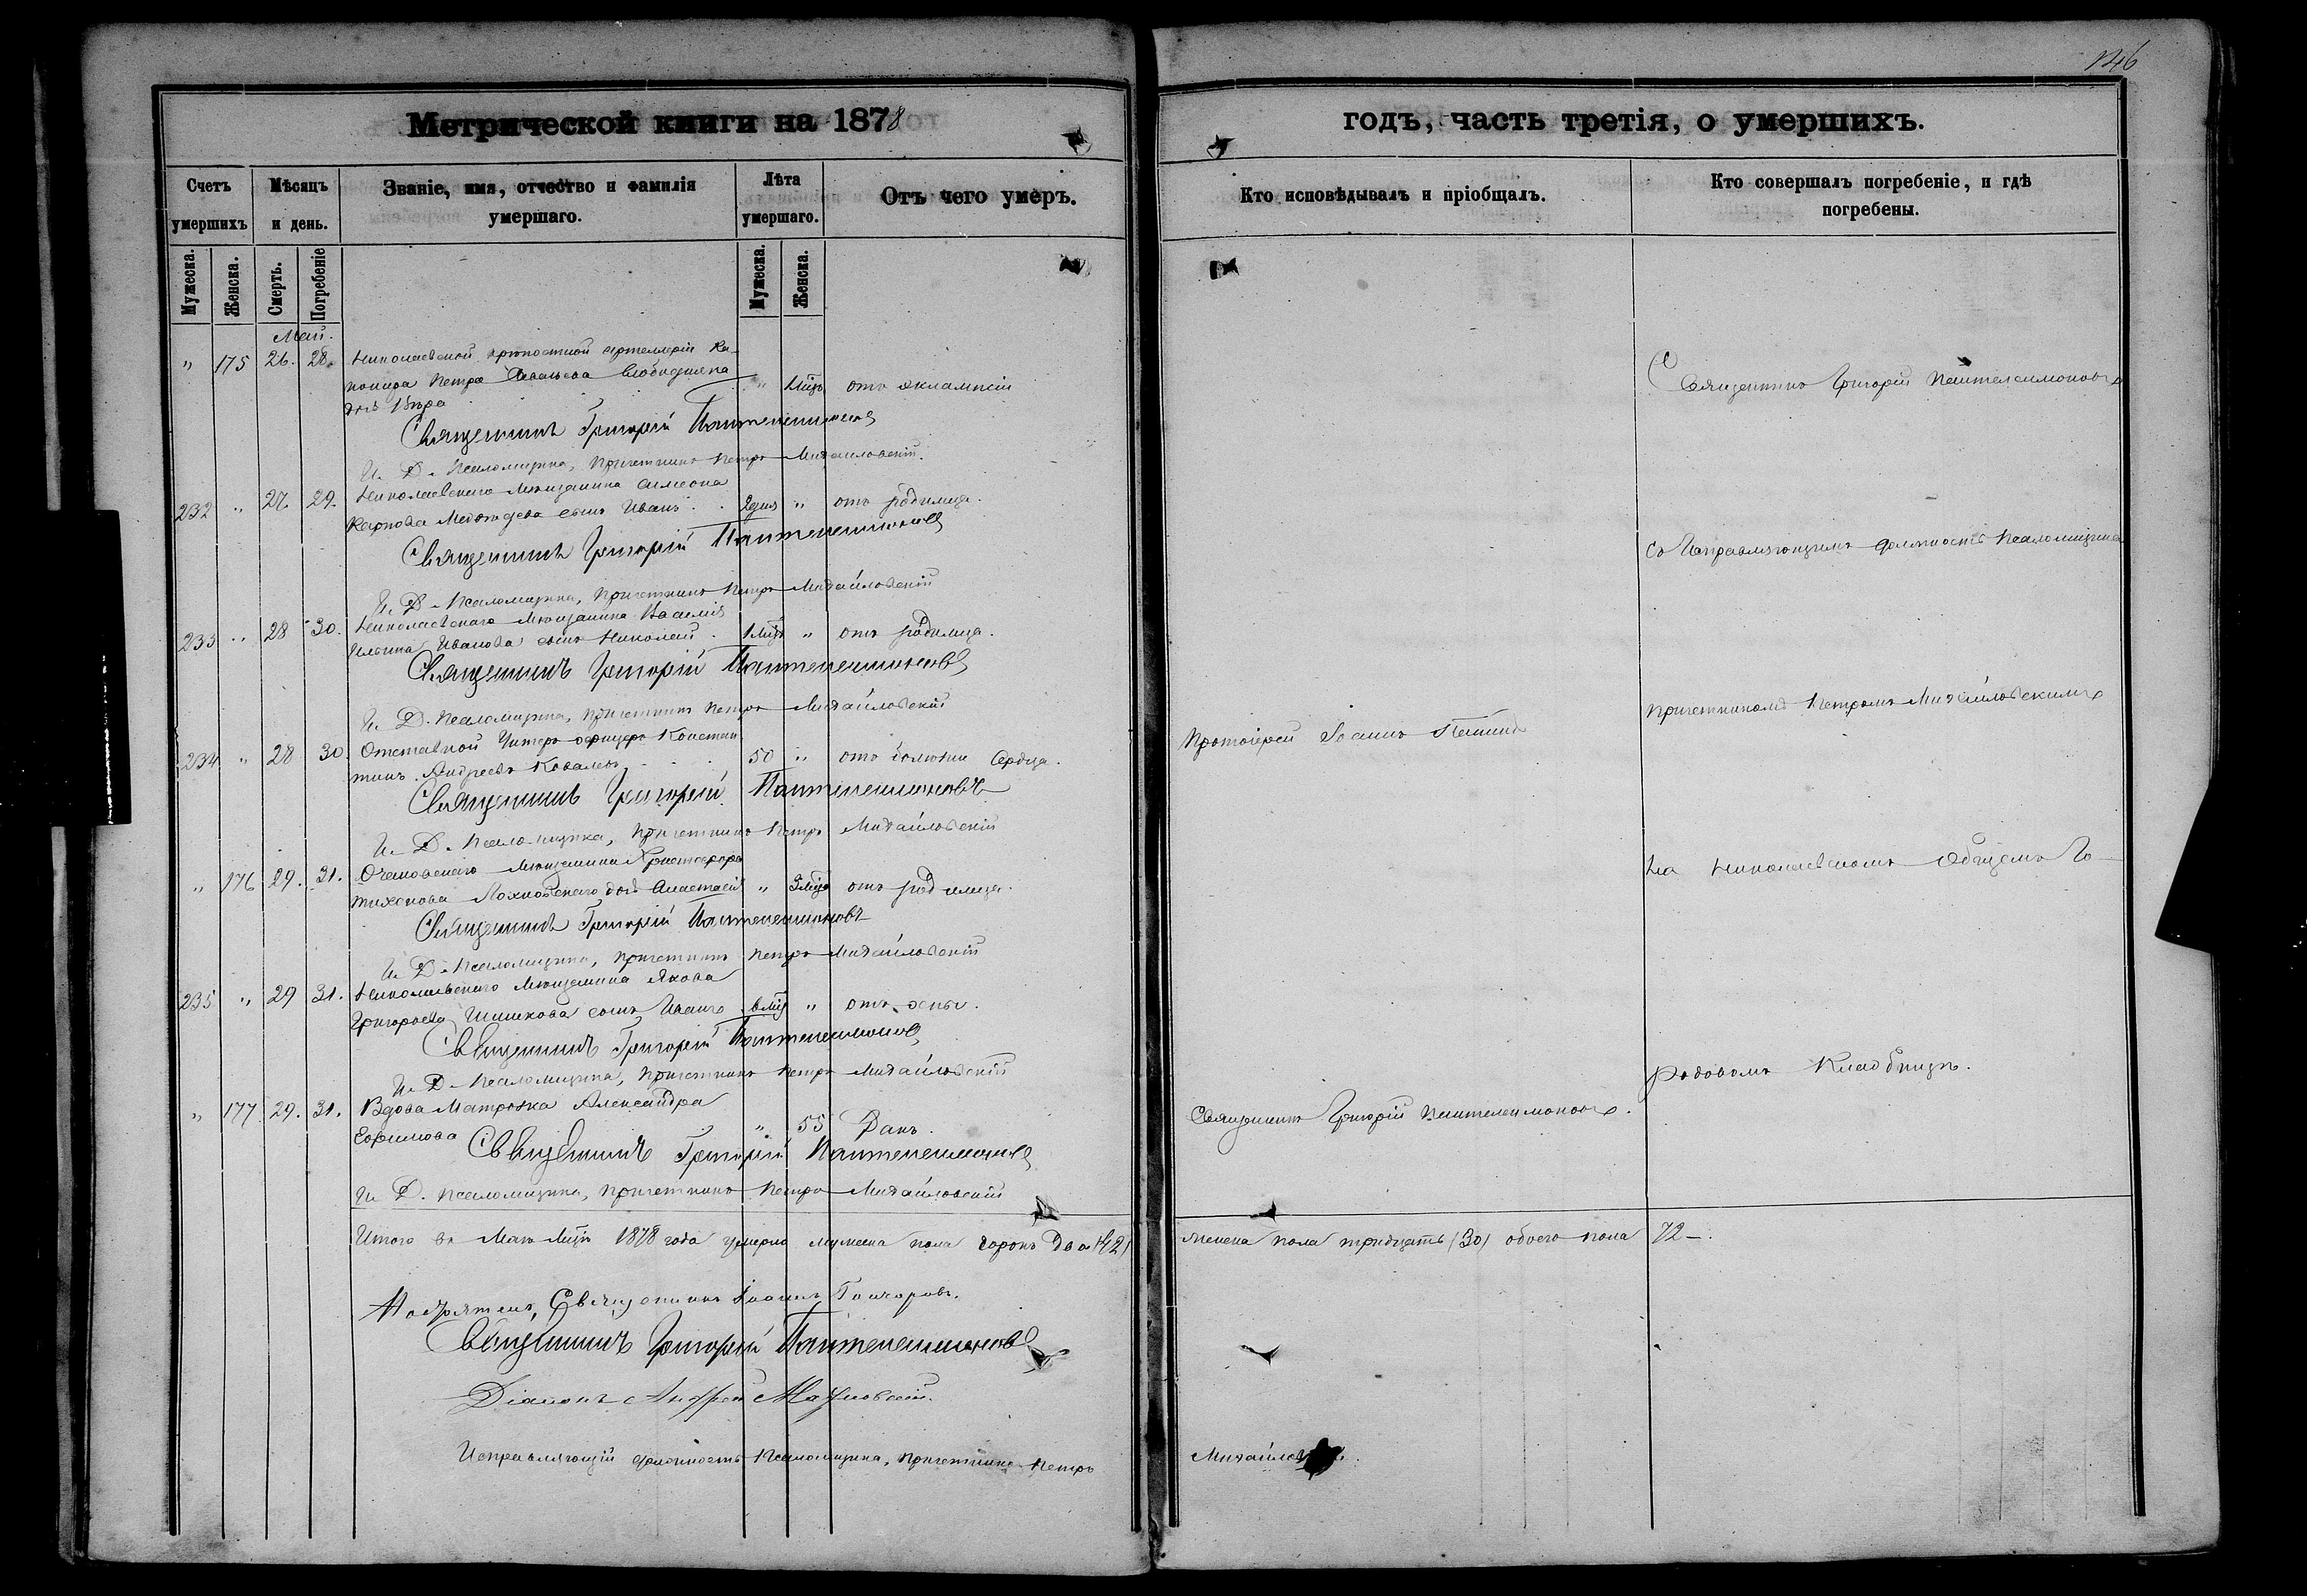 146
Метрической книги на 1878
годъ, часть третія, о умершихъ.
Счетъ умершихъ.
Мѣсяцъ и день.
Званіе, имя, отчество и фамилія умершаго.
Лѣта умершаго.
Отъ чего умеръ.
Кто исповѣдывалъ и пріобщалъ.
Кто совершалъ погребеніе, и гдѣ погребены.
Мужеска.
Женска.
Смерть.
Погребеніе
Мужеска.
Женска.
Май.
" 175 26. 28. Николаевской крѣпостной артеллеріи Ка-
нонира Петра Слободяна " отъ эклампсіи
дочь Вѣра
Священникъ Григорій Пантелеимоновъ
И. Д. Псаломщика, Причетникъ Петръ Михайловскій.
232 " 27 29. Николаевскаго Мѣщанина Симеона
Карпова сынъ Иванъ . . 2 дня " отъ родимца.
Священникъ Григорій Пантелеимоновъ
И. Д. Псаломщика, Причетникъ Петръ Михайловскій
233 " 28 30. Николаевскаго Мѣщанина Василія
Ильина Иванова сынъ Николай . 1 мѣц " отъ родимца.
Священникъ Григорій Пантелеимоновъ
И. Д. Псаломщика, Причетникъ Петръ Михайловскій
234 " 28 30 Отставной Унтеръ офицеръ Констан-
тинъ Андреевъ Ковалевъ . . . 50 " отъ болѣзни сердца.
Священникъ Григорій Пантелеимоновъ
И. Д. Псаломщика, Причетникъ Петръ Михайловскій
" 176 29. 31. Очаковскаго Мѣщанина Христофора
Тихонова дочь Анастасія " 3 мѣц отъ родимца.
Священникъ Григорій Пантелеимоновъ
И. Д. Псаломщика, Причетникъ Петръ Михайловскій
235 " 29 31. Николаевскаго Мѣщанина Якова
Григорьева Шишкова сынъ Иванъ 6 мѣц " отъ оспы.
Священникъ Григорій Пантелеимоновъ
И. Д. Псаломщика, Причетникъ Петръ Михайловскій
" 177 29. 31. Вдова Матроска Александра
Ефимова " 55 Ракъ.
Священникъ Григорій Пантелеимоновъ
И. Д. Псаломщика, Причетникъ Петръ Михайловскій
Итого въ Маѣ Мѣцѣ 1878 года умерло мужеска пола сорокъ два (42)
женска пола тридцать (30) обоего пола 72 –.
Священникъ Іоаннъ Гончаровъ.
Священникъ Григорій Пантелеимоновъ
Діаконъ Андрей
Исправляющій должность Псаломщика, Причетникъ Петръ
Протоіерей Іоаннъ
Священникъ Григорій Пантелеимоновъ.
Священникъ Григорій Пантелеимоновъ
Съ Исправляющимъ должность Псаломщика
Причетникомъ Петромъ Михайловскимъ
На Николаевскомъ Общемъ Го-
родовомъ Кладбищѣ.